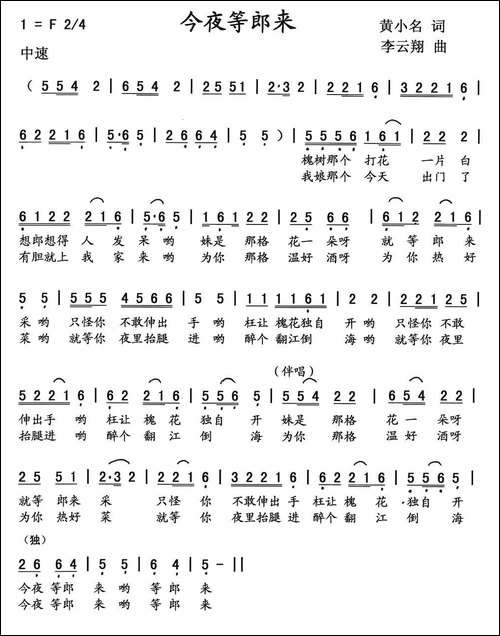 今夜等郎来
1 = F 2/4
黄小名 词
中速
李云翔 曲
( 5 5 4 2 | 6 5 4 2 | 2 5 5 1 | 2·3 2 | 2 2 1 6 | 3 2 2 1 6 |
6 2 2 1 6 | 5·6 5 | 2 6 6 4 | 5 5 ) | 5 5 5 6 1 6 1 | 2 2 2
槐树那个 打花 一片 白
我娘那个 今天 出门 了
6 1 2 2 2 1 6 | 5·6 5 | 1 6 1 2 2 | 6 5 4 2 2 | 6 1 2 2 1 6 |
想郎想得 人 发 呆 哟 妹是 那格 花一 朵呀 就 等 郎 来
有胆就上 我 家 来 哟 为你 那格 温好 酒呀 为 你 热 好
5 5 | 5 5 5 4 5 6 6 | 5 5 | 1 1 1 6 1 | 5 5 5 5 4 5 6
采 哟 只怪你 不敢伸出 手 哟 枉让 槐花独自 开 哟 只怪你 不敢
菜 哟 就等你 夜里抬腿 进 哟 醉个 翻江倒 海 哟 就等你 夜里
5 2 2 1 | 6 2 2 1 | 6 5 5 6
伸出手 哟 枉让 槐 花 独自 开 妹是 那格 花 一 朵呀
抬腿进 哟 醉个 翻 江 倒 海 为你 那格 温 好 酒呀
(伴唱)
2 5 5 1 | 2·3 2
就等 郎来 采 只怪 你 不敢伸出 手 枉让 槐 花 独自 开
为你 热好 菜 就等 你 夜里抬腿 进 醉个 翻 江 倒 海
(独)
2 6 6 4 | 5 5 | 6 4 | 5 - ||
今夜 等郎 来 哟 等 郎 来
今夜 等郎 来 哟 等 郎 来